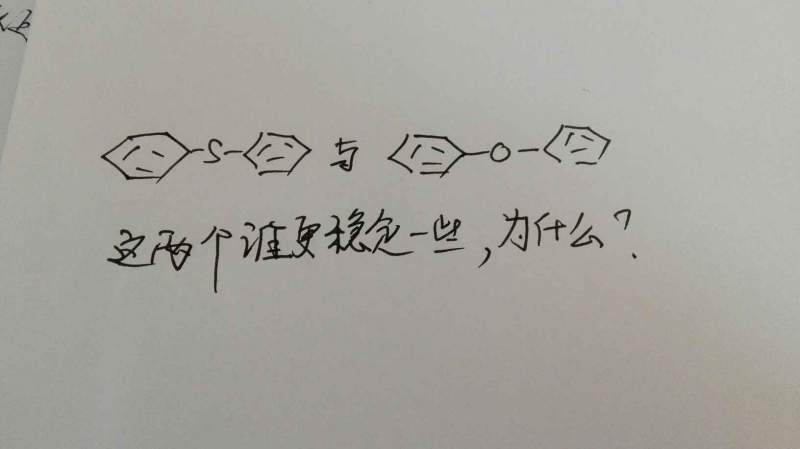 S 与 O
这两个谁更稳定一些,为什么?